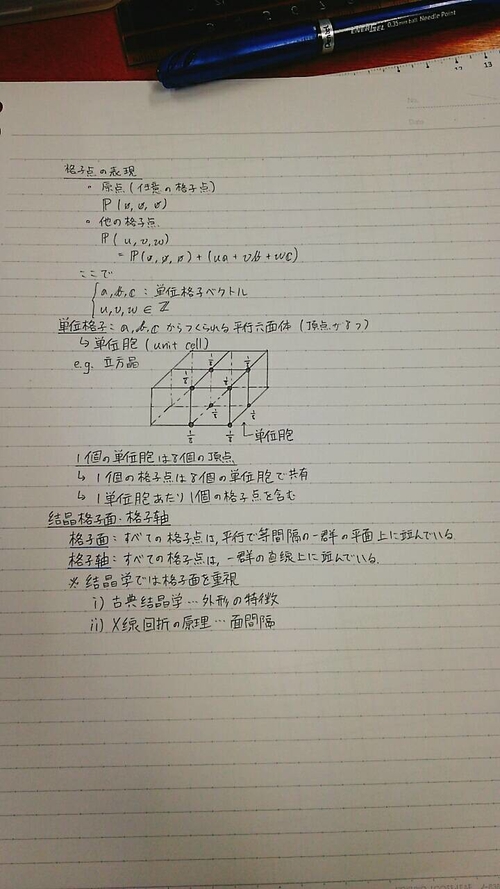 ENERGEL 0.35mm ball Needle Point
12 13
No.
Date
格子点の表現
◦ 原点(任意の格子点)
ℙ(0,0,0)
◦ 他の格子点
ℙ(u,v,w)
= ℙ(0,0,0)+(ua+vb+wc)
ここで
{ a,b,c : 単位格子ベクトル
u,v,w ∈ ℤ
単位格子:a,b,cからつくられる平行六面体(頂点が8つ)
↳ 単位胞(unit cell)
e.g. 立方晶
1/8 1/8
1/8 1/8
1/8 1/8
1/8 1/8
単位胞
1個の単位胞は8個の頂点
↳ 1個の格子点は8個の単位胞で共有
↳ 1単位胞あたり1個の格子点を含む
結晶格子面・格子軸
格子面:すべての格子点は,平行で等間隔の一群の平面上に並んでいる.
格子軸:すべての格子点は,一群の直線上に並んでいる.
※ 結晶学では格子面を重視
i) 古典結晶学…外形の特徴
ii) X線回折の原理…面間隔